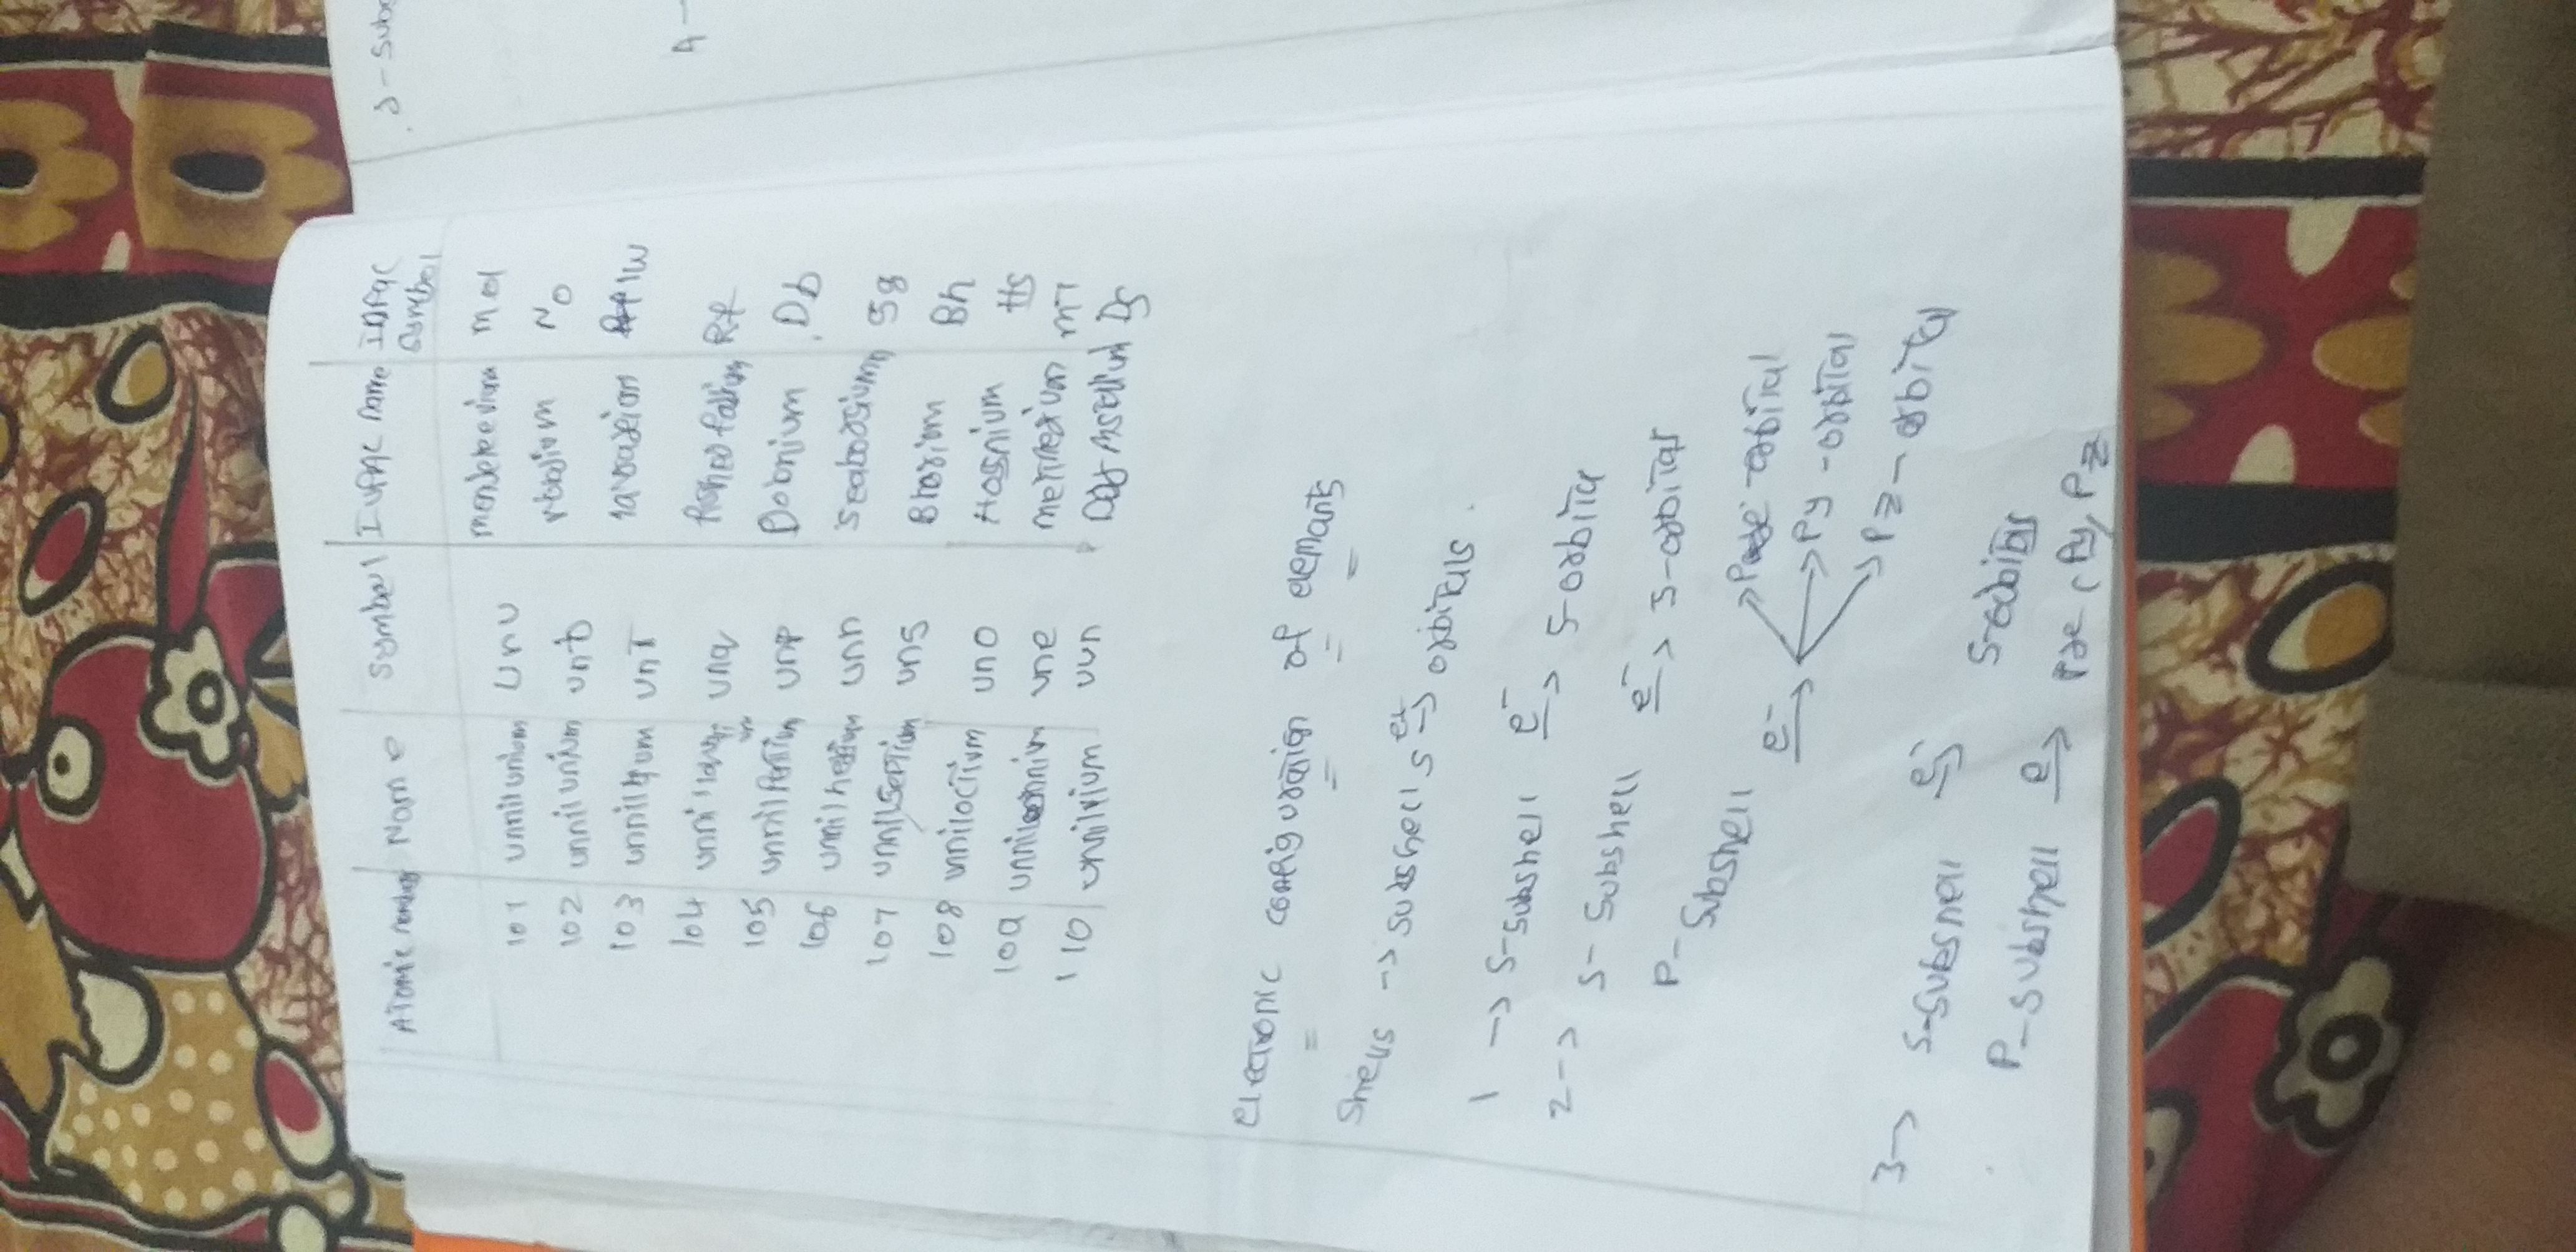 Atomic number Name Symbol IUPAC name IUPAC Symbol
101 unnilunium Unu mendeleevium md
102 unnilunium unb Nobelium No
103 unniltrium unT lw
104 unq Rf
105 unnilpentium unp Dobnium Db
106 unnilhexium unh Seaborgium Sg
107 unnilseptium uns Bhorium Bh
108 unniloctium uno Hassnium Hs
109 une mT
110 uun Ds
electronic configuration of elemants
Shells -> subshells -> orbitals.
1 -> S-subshell e- -> S-orbital
2 -> S-Subshell e- -> S-orbital
P-Subshell e- -> orbital
Py -orbital
Pz-orbital
3-> S-subshell e- -> S-orbital
P-subshell e -> Px, Py, Pz
J-Subs
4-